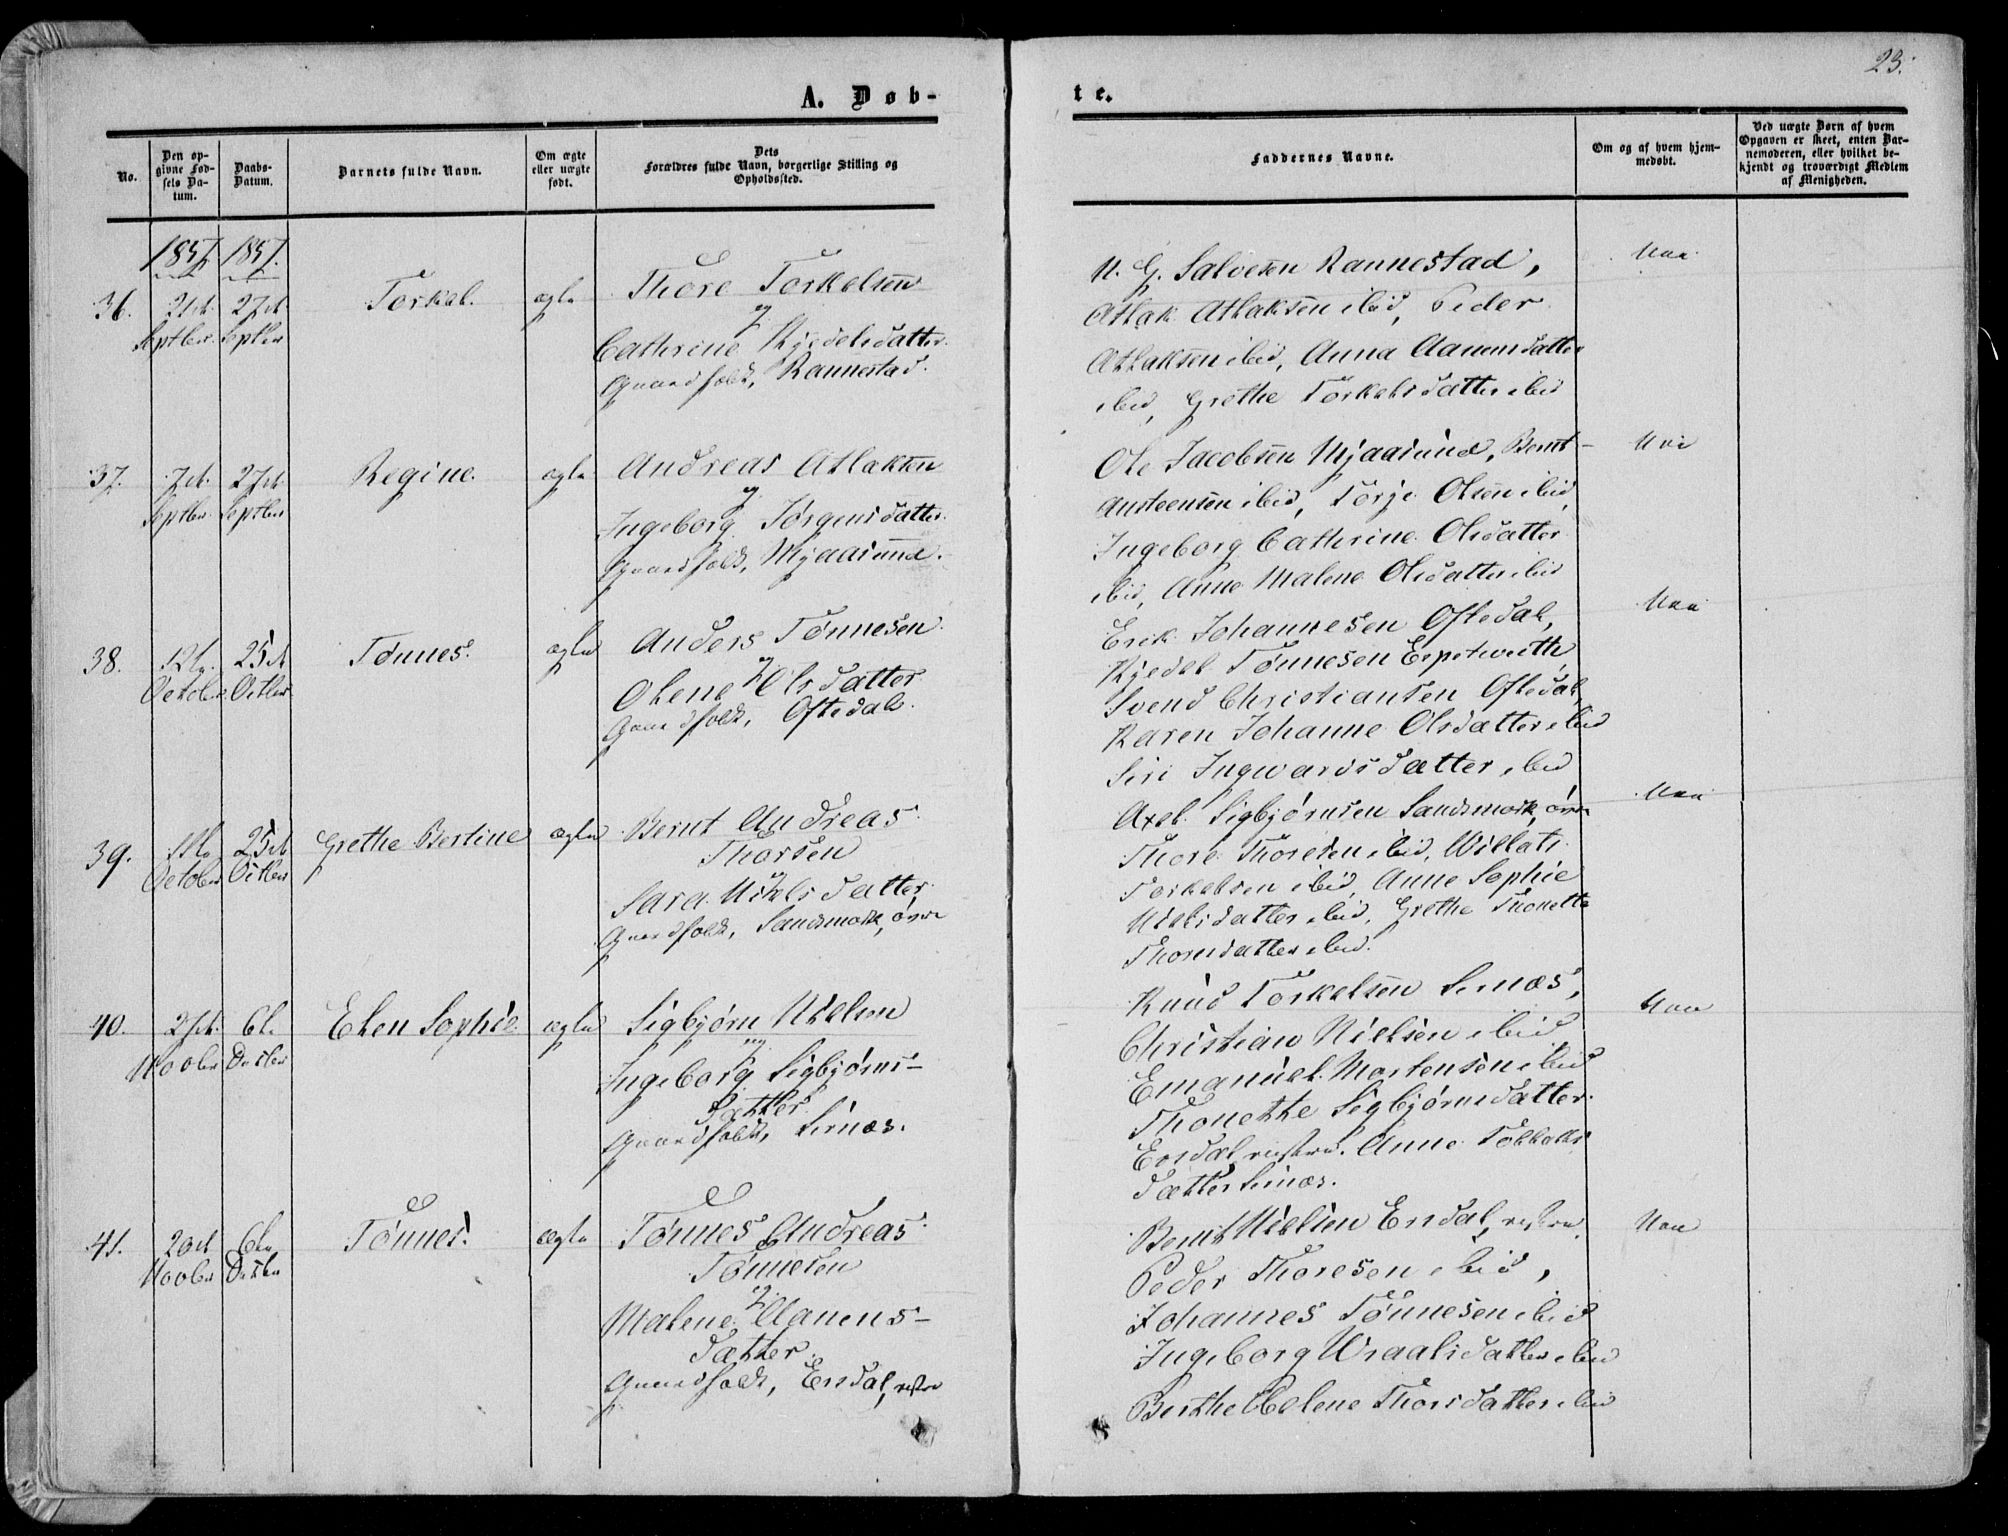 23.
A. Døb-
te.
No.
Den op-
givne Fød-
sels Da-
tum.
Daabs-
Datum.
Barnets fulde Navn.
Om ægte
eller uægte
født.
Dets
Forældres fulde Navn, borgerlige Stilling og
Opholdssted.
Faddernes Navne.
Om og af hvem hjem-
medøbt.
Ved uægte Børn af hvem
Opgaven er skeet, enten Bar-
nemoderen, eller hvilket be-
kjendt og troværdigt Medlem
af Menigheden.
1857. 1857.
36.
21de
Septber
27de
Septber
Torkel.
ægte
Thore Torkelsen
og
Cathrine Kjedelsdatter
Gaardfolk, Rannestad.
N. G. Salvesen Rannestad,
Atlak Atlaksen ibid, Peder
Atlaksen ibid, Anna Aanensdatter
ibid, Grethe Torkelsdatter ibid
37.
7de
Septber
27de
Septber
Regine.
ægte
Andreas Atlaksen
og
Ingeborg Jørgensdatter
Gaardfolk, Mjaasund.
Ole Jacobsen Mjaasund, Bernt
Austensen ibid, Torje Olsen ibid,
Ingeborg Cathrine Olsdatter
ibid, Anne Malene Olsdatter ibid
38.
12te
October
25de
Octber
Tønnes.
ægte
Anders Tønnesen
og
Olene Olsdatter
Gaardfolk, Oftedal.
Erik Johannesen Oftedal,
Kjedel Tønnesen
Svend Christiansen Oftedal,
Karen Johanne Olsdatter ibid
Siri Ingwardsdatter ibid
39.
October
25de
Octber
Grethe Bertine
ægte
Bernt Andreas
Thorsen
og
Sara Nielsdatter
Gaardfolk, Sandsmork, øvre
Axel Sigbjørnsen Sandsmork, øvre
Thore Thoresen ibid, Willats
Torkelsen ibid, Anne Sophie
Nielsdatter ibid, Grethe Thonette
Thorsdatter ibid.
40.
Novber
6te
Decber
Elen Sophie
ægte
Sigbjørn Nielsen
og
Ingeborg Sigbjørns-
datter
Gaardfolk, Sirnæs.
Knud Torkelsen Sirnæs,
Christian Nielsen ibid
Emanuel Mortensen ibid
Thonette Sigbjørnsdatter
Ersdal, vestre. Anne
datter Sirnæs.
41.
20de
Novber
6te
Decber
Tønnes.
ægte
Tønnes Andreas
Tønnesen
og
Malene Aanens-
datter
Gaardfolk, Ersdal, vestre
Bernt Nielsen Ersdal, vestre
Peder Thoresen ibid,
Johannes Tønnesen ibid
Ingeborg Wraalsdatter ibid
Berthe Helene Thorsdatter ibid